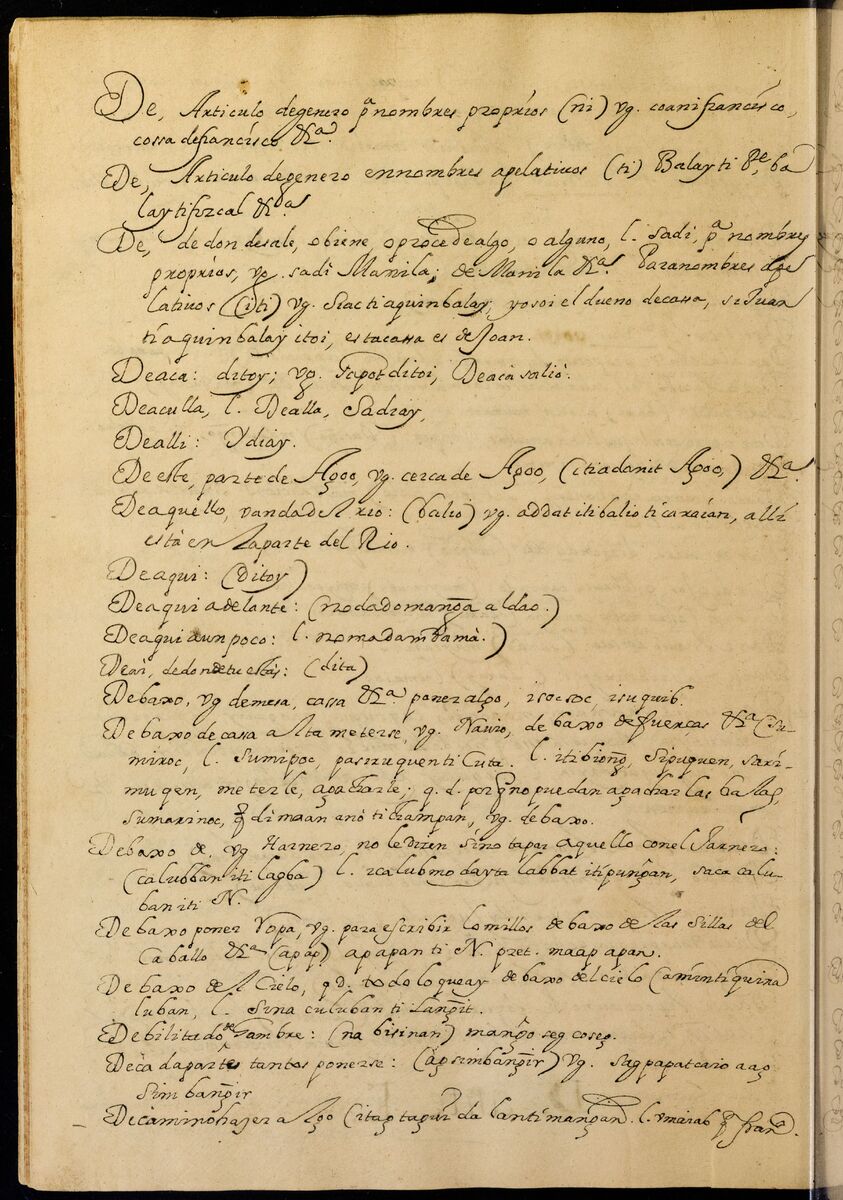 De, Articulo degenero pª nombres proprios (ni) vg. coanifrancisco,
cossa defrancisco &ª.
De, Articulo degenero ennombres apelativos (ti) Balay ti Pe, ba
lay tifizcal &ª.
De, de don desale, obiene, o procede algo, o alguno, l. sadi, pª nombres
proprios, vg. sadi Manila; de Manila &ª. Paranombres ape
lativos (iti) vg. Siac ti aquinbalay, yo soi el dueno decassa, si Juan
ti aquinbalay itoi, esta cassa es de Joan.
De aca: ditoy; vg. Tapot ditoi, De acà saliò.
De aculla, l. De alla, Sadiay,
De alli: Ydiay.
De este, parte de Agoo, vg. cerca de Agoo, (itiadanit Agoo,) &ª.
De aquello, vanda del rio: (balio) vg. addat iti balio ti caraian, alli
està en la parte del Rio.
De aqui: (ditoy)
De aqui adelante: (no dadomanga aldao.)
De aqui aun poco: l. nomadamdamà.)
De ai, de donde tu estàs: (dita)
Debaxo, vg demesa, cassa &ª. poner algo, isocsoc, isuquib.
Debaxo de casa alta meterse, vg. Navio, de baxo de fuercas &ª (Su-
miroc, l. Sumipoc, l. itibiong, Sipuquen, sari-
muqen, meterle, agacharle; q. d. porq no puedan agachar las balas,
sumarinoc, di maan anò ti champan, vg. debaxo.
Debaxo de, vg Harnero, no le dizen sino tapar aquello con el Jarnero:
(calubban iti lagba) l. icalubmo dayta labbat itipungan, saca calu-
ban iti N.
Debaxo poner Ropa, vg. para escribir lomillos debaxo de las sillas del
Caballo &ª (apap) apapan ti N. pret. inaapapan.
Debaxo del Cielo, qd. todo lo que ay debaxo del cielo (amin ti quina
luban, l. sina culuban ti Langit.
Debilitado de hambre: (na bisinan) mango seg coseg.
De cada parte tantos ponerse: (ag simbangir) vg. sagpapat caio aag
simbangir
De camino hazer algo l. umarab